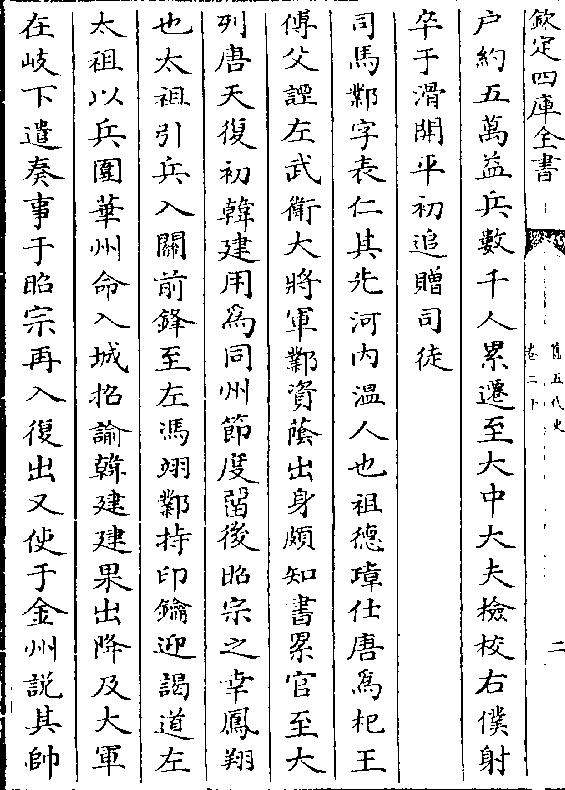 欽定四庫全書
舊五代史
卷二十
二
户約五萬益兵數千人累遷至大中大夫檢校右僕射
卒于滑開平初追贈司徒
司馬鄴字表仁其先河内温人也祖德璋仕唐為杞王
傅父諲左武衛大將軍鄴資蔭出身頗知書累官至大
列唐天復初韓建用為同州節度留後昭宗之幸鳳翔
也太祖引兵入關前鋒至左馮翊鄴持印鑰迎謁道左
太祖以兵圍華州命入城招諭韓建建果出降及大軍
在岐下遣奏事于昭宗再入復出又使于金州説其帥